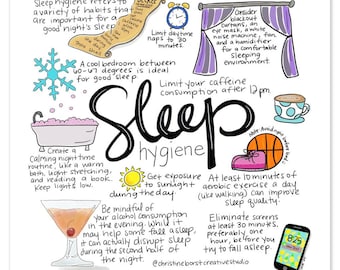 Sleep hygiene refers to
a variety of habits that
are important for a
good night's sleep.
Limit daytime
naps to 30
minutes.
Consider
blackout
curtains, an
eye mask, a white
noise machine, fan,
and a humidifier
for a comfortable
sleeping
environment.
A cool bedroom between
60-67 degrees is ideal
for good sleep
Limit your caffeine
consumption after 12pm.
Sleep
hygiene
Create a
calming nighttime
routine, like a warm
bath, light stretching,
and reading a book.
Keep lights low.
Get exposure
to sunlight
during the day.
At least 10 minutes of
aerobic exercise a day
(like walking) can improve
sleep quality.
Be mindful of
your alcohol consumption
in the evening. While it
may help some fall asleep,
it can actually disrupt sleep
during the second half of
the night.
Eliminate screens
at least 30 minutes,
preferably one
hour, before you
try to fall asleep.
8:29
@christineborstcreativestudio